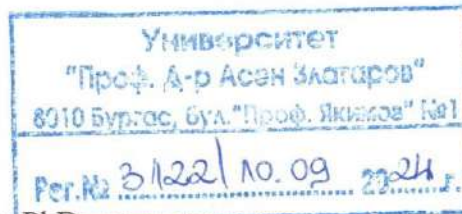 Университет
"Проф. д-р Асен Златаров"
8010 Бургас, бул."Проф. Якимов" №1
Рег.№ 3122/10.09 2024 г.